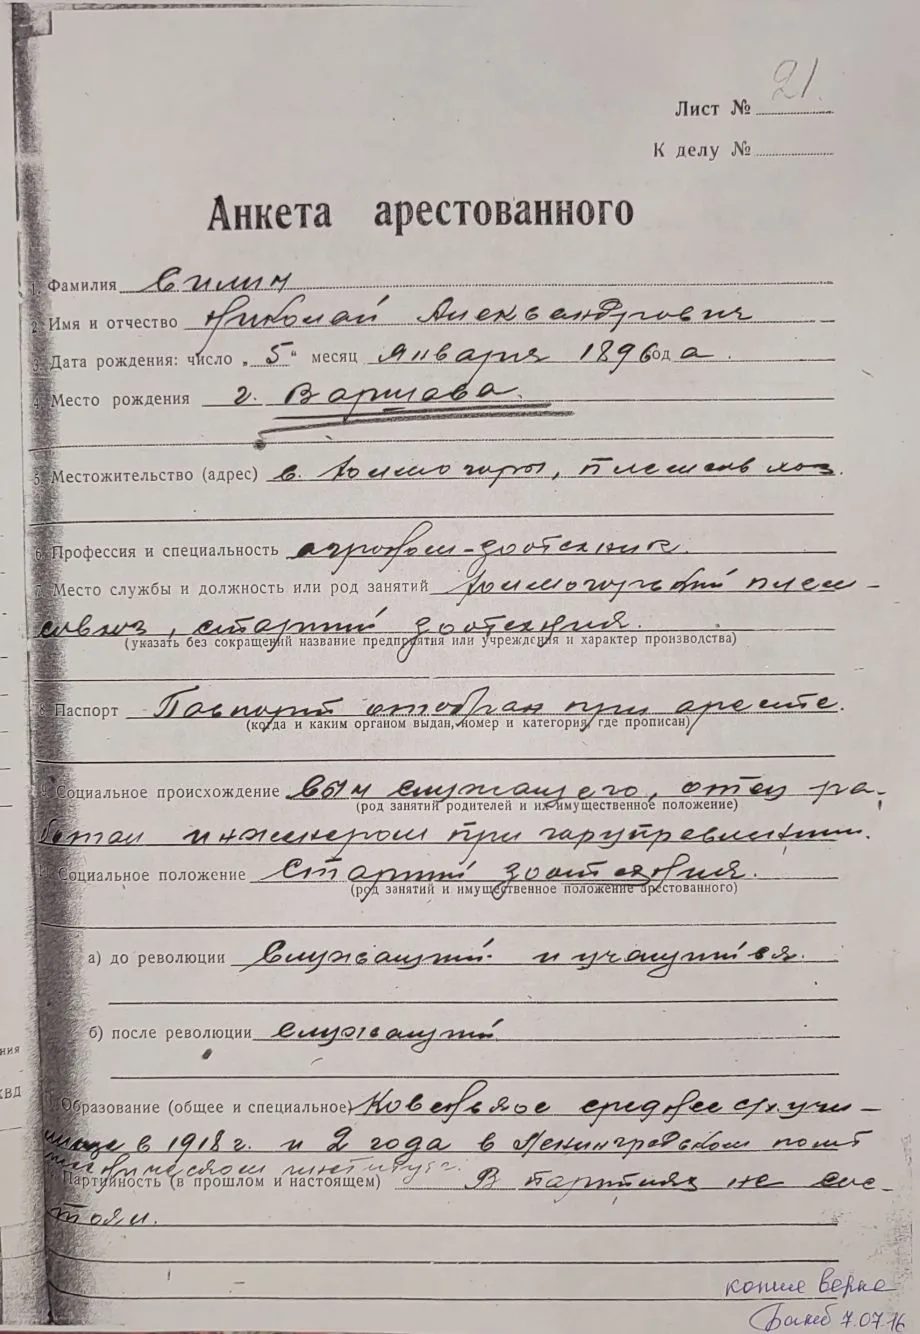 21.
Лист №
К делу №
Анкета арестованного
1. Фамилия Силин
2. Имя и отчество Николай Александрович
3. Дата рождения: число „5“ месяц Января 1896ода.
4. Место рождения г. Варшава.
5. Местожительство (адрес) с. Холмогоры, племсовхоз.
6. Профессия и специальность агроном-зоотехник.
7. Место службы и должность или род занятий Холмогорский плем-
совхоз, старший зоотехник.
(указать без сокращений название предприятия или учреждения и характер производства)
8. Паспорт Паспорт отобран при аресте.
(когда и каким органом выдан, номер и категория, где прописан)
9. Социальное происхождение Сын служащего, отец ра-
ботал инженером при горуправлении.
(род занятий родителей и их имущественное положение)
Социальное положение Старший зоотехник.
(род занятий и имущественное положение арестованного)
а) до революции Служащий и учащийся.
б) после революции служащий
ния
КВД
Образование (общее и специальное) Ковенское среднее с/х учи-
лище в 1918 г. и 2 года в Ленинградском полит
институт.
Партийность (в прошлом и настоящем) В партиях не сос-
тоял.
копия верна
7.07.16